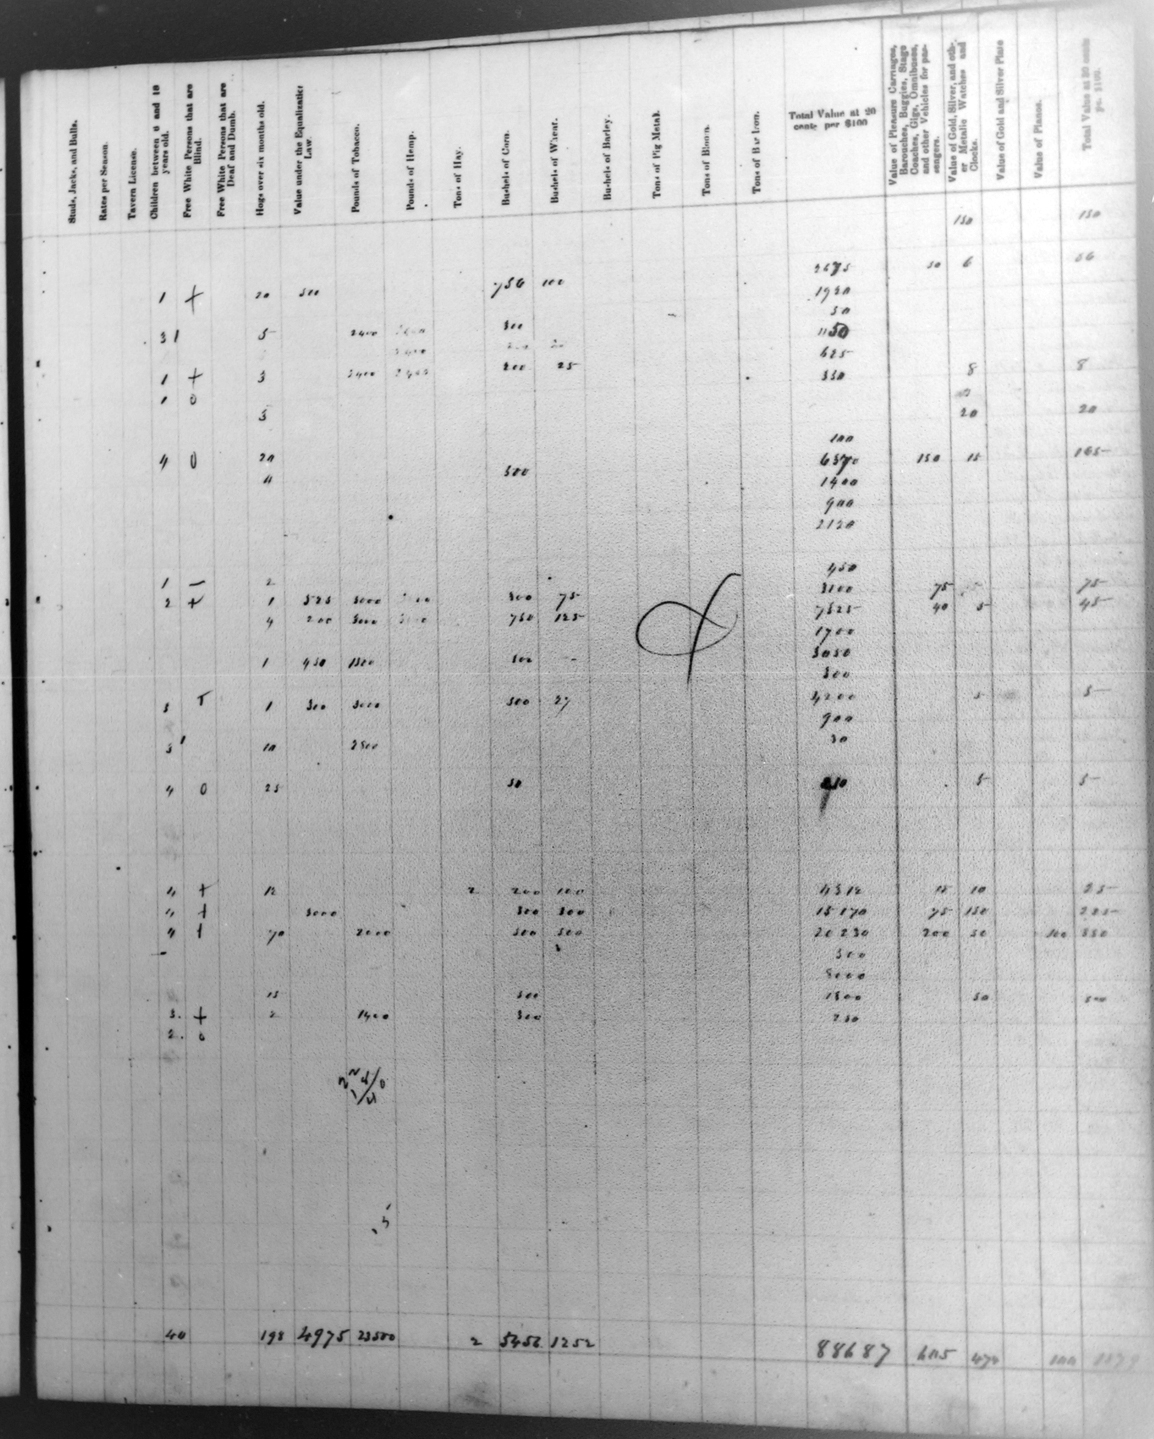 Studs, Jacks, and Bulls.
Rates per Season.
Tavern License.
Children between 6 and 18 years old.
Free White Persons that are Blind.
Free White Persons that are Deaf and Dumb.
Hogs over six months old.
Value under the Equalization Law.
Pounds of Tobacco.
Pounds of Hemp.
Tons of Hay.
Bushels of Corn.
Bushels of Wheat.
Bushels of Barley.
Tons of Pig Metal.
Tons of Bloom.
Tons of Bar Iron.
Total Value at 20 cents per $100
Value of Pleasure Carriages, Barouches, Buggies, Stage Coaches, Gigs, Omnibuses, and other Vehicles for passengers.
Value of Gold, Silver, and other Metalic Watches and Clocks.
Value of Gold and Silver Plate
Value of Pianos.
Total Value at 30 cents pr. $100.
150 150
2675 50 6 56
1 + 20 500 756 100 1920
50
3 1 5 2400 300 1150
625
1 + 3 2400 2400 200 25 330 8 8
1 0
3 20 20
100
4 0 20 500 6570 150 15 165
4 1400
900
2120
450
1 – 2 3100 75 75
2 + 1 525 3000 300 75 7525 40 5 45
4 200 3000 750 125 1700
1 450 1500 500 3050
300
3 1 300 3000 500 27 4200 5 5
900
3 10 2500 30
4 0 25 50 5 5
4 + 12 2 200 100 4312 15 10 25
4 + 3000 300 300 15170 75 150 225
4 1 70 2000 500 500 20230 200 50 100 350
500
8000
15 300 1500 50
3. + 2 1400 300 250
2. 0
40 198 4975 23500 2 5456 1252 88687 605 470 100